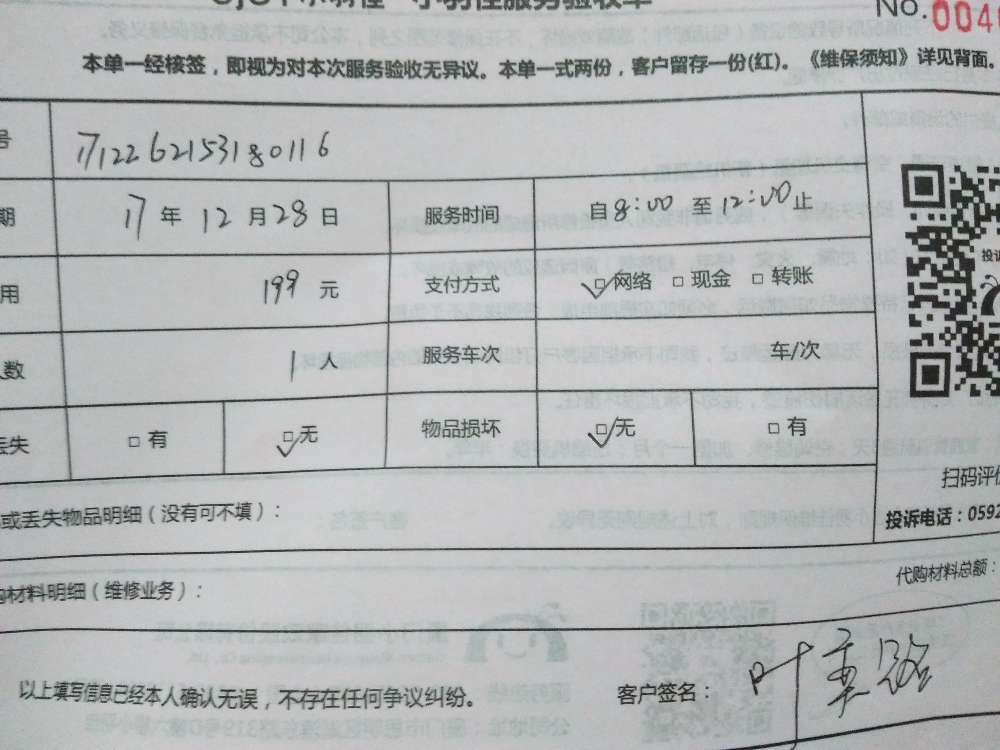 小羽佳服务验收单
No.004
本单一经核签，即视为对本次服务验收无异议。本单一式两份，客户留存一份(红)。《维保须知》详见背面。
号 1712262153180116
期 17 年 12 月 28 日 服务时间 自 8:00 至 12:00 止
用 199 元 支付方式 ☑网络 □现金 □转账
人数 1 人 服务车次 车/次
丢失 □有 ☑无 物品损坏 ☑无 □有
扫码评价
或丢失物品明细（没有可不填）：
投诉电话：0592
购材料明细（维修业务）：
代购材料总额：
以上填写信息已经本人确认无误，不存在任何争议纠纷。
客户签名：